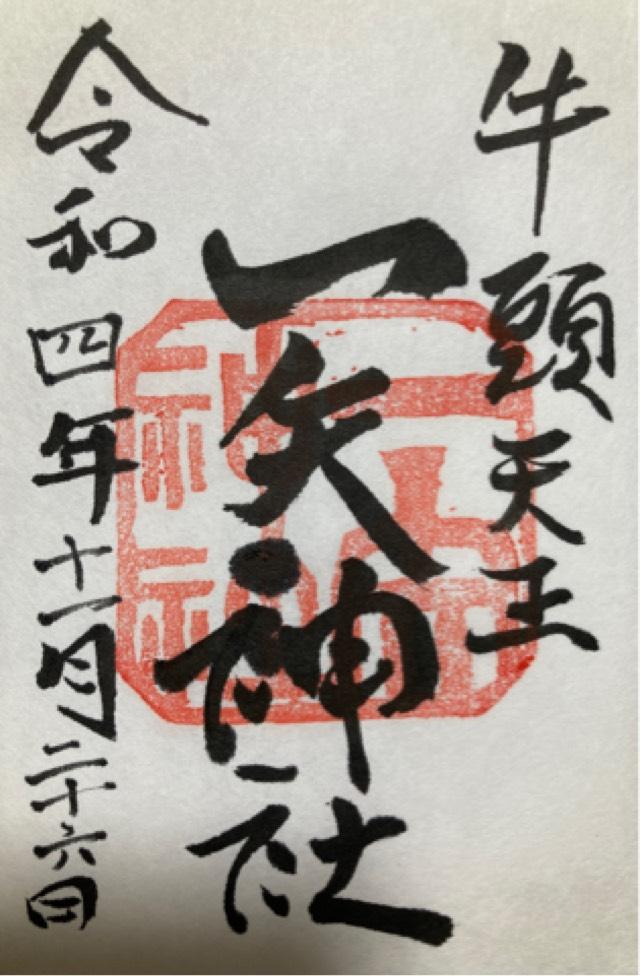 牛頭天王
一矢神社
令和四年十一月二十六日
一矢神社